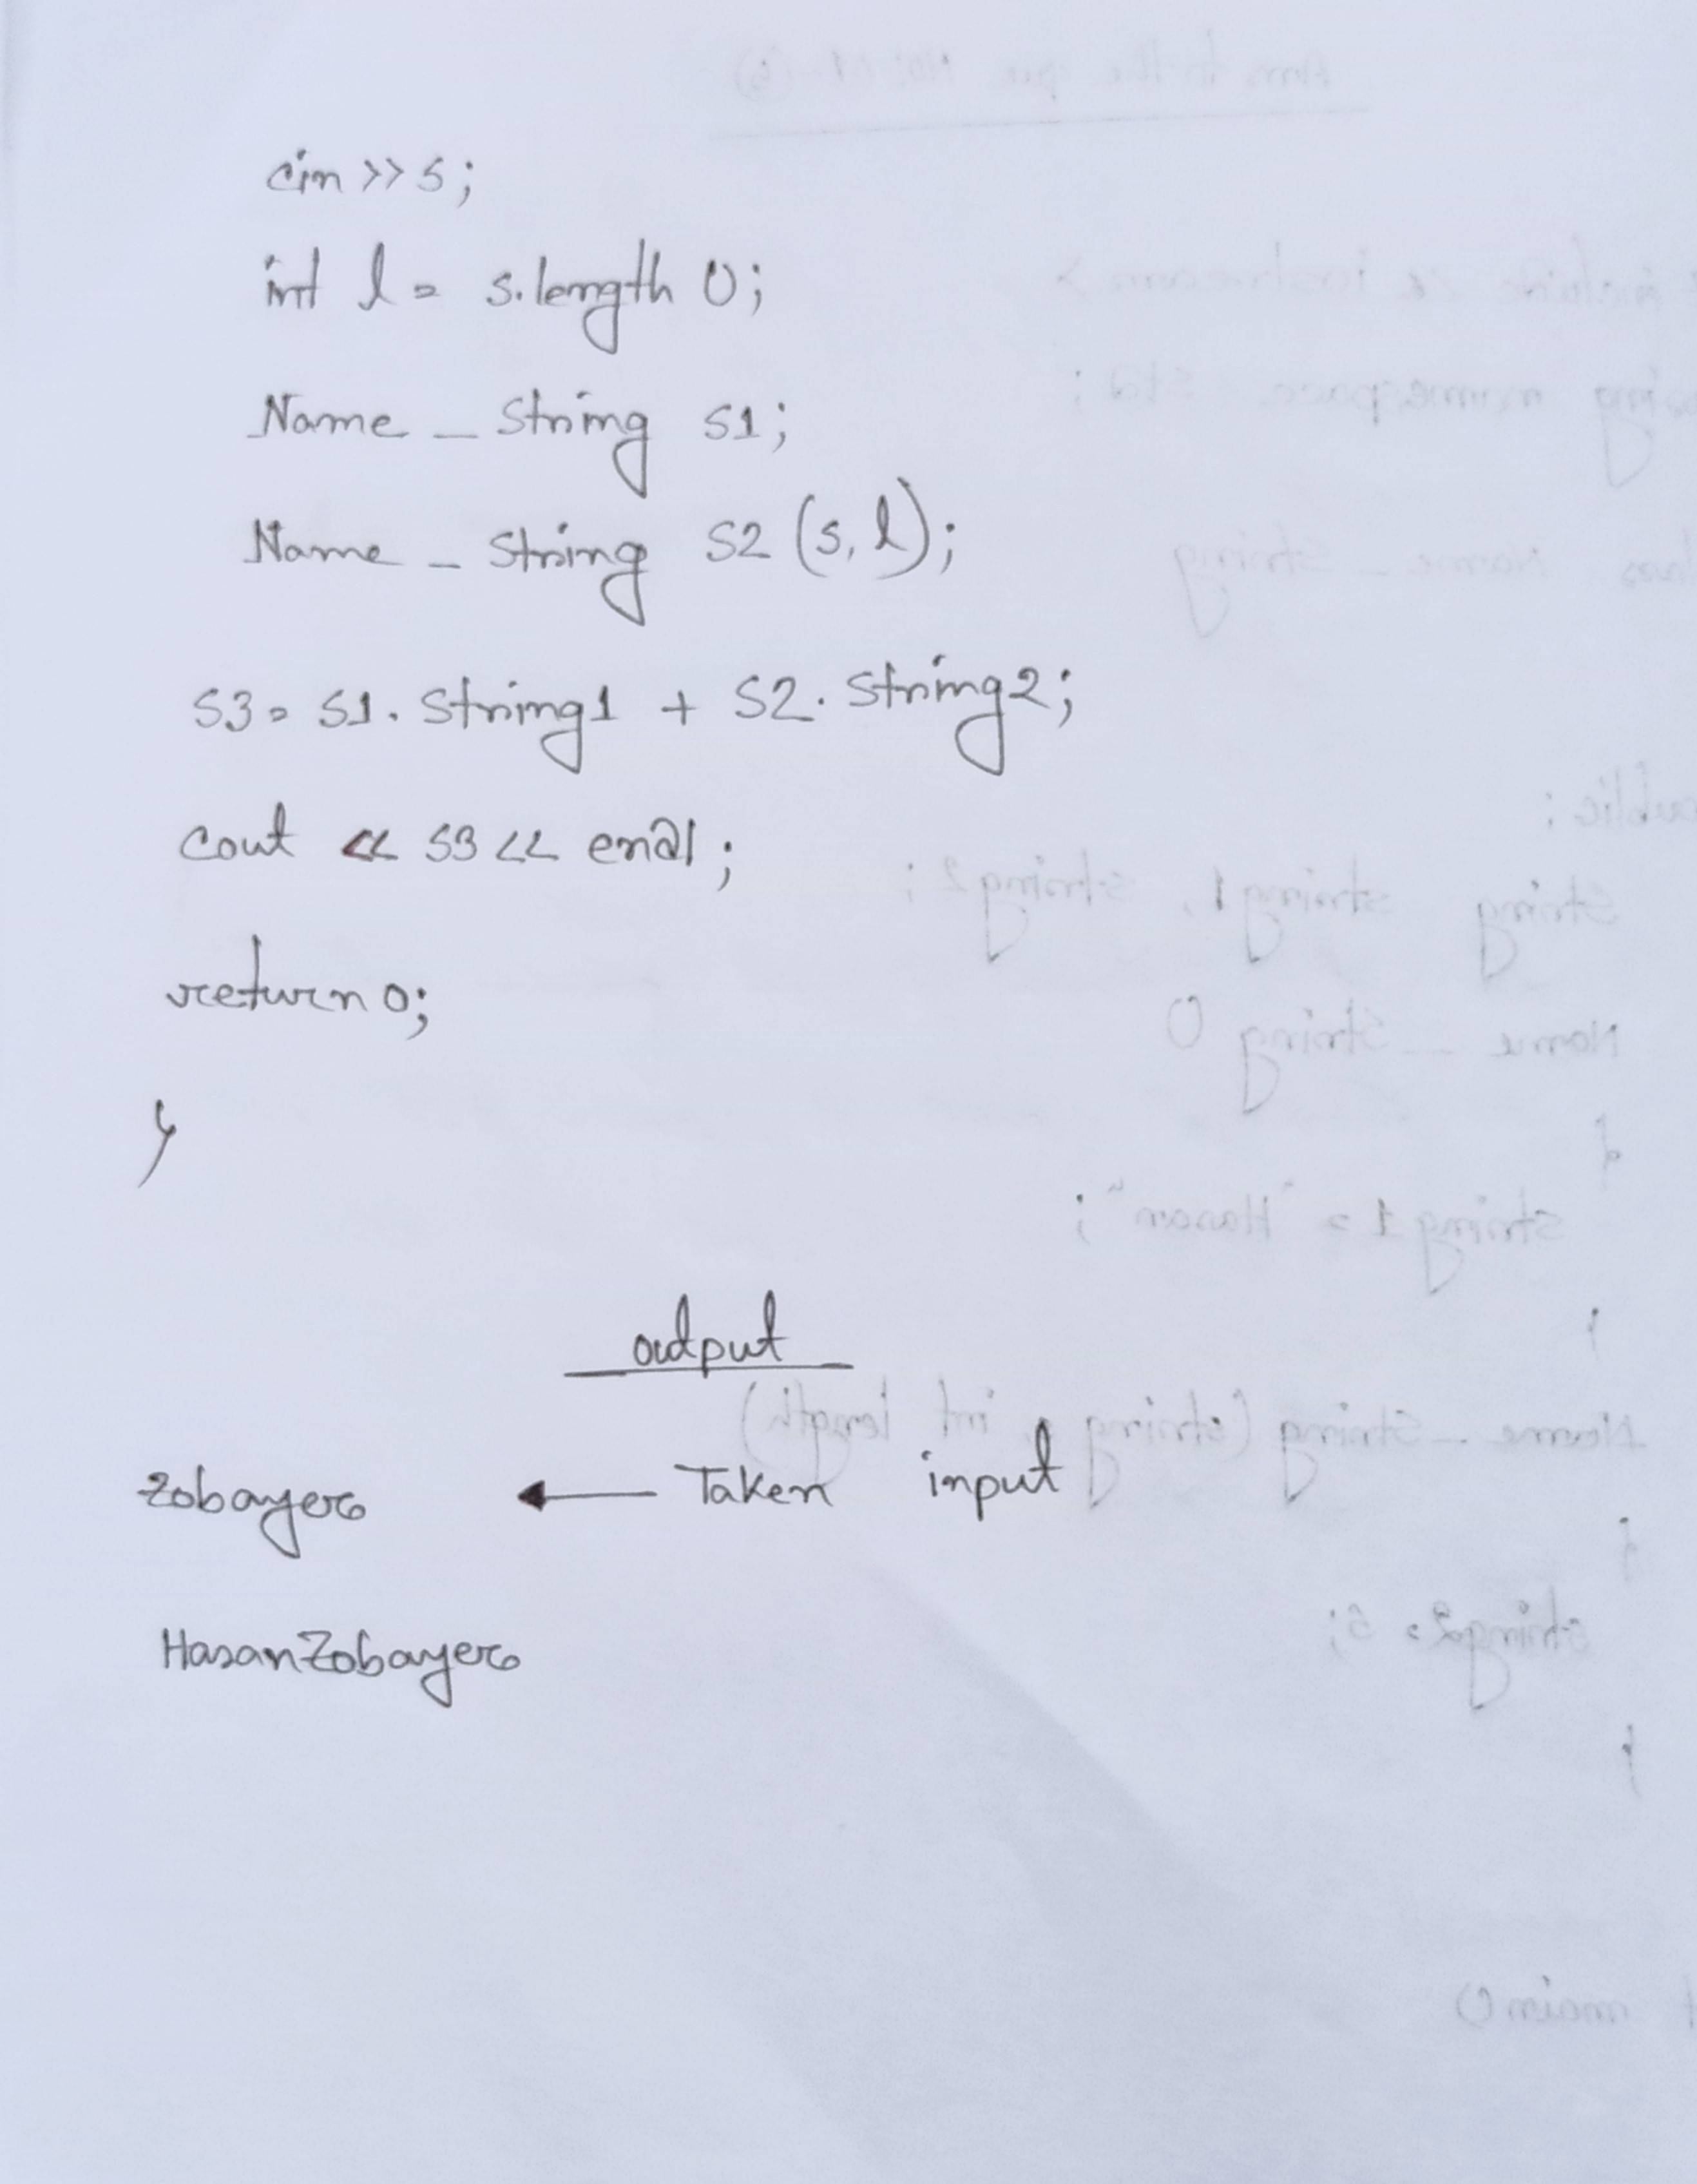 cin >> s;
int l = s.length ();
Name _ String S1;
Name _ String S2 (s, l);
S3 = S1. String1 + S2. String2;
cout << S3 << endl;
return 0;
}
output
Zobayer ← Taken input
HasanZobayer